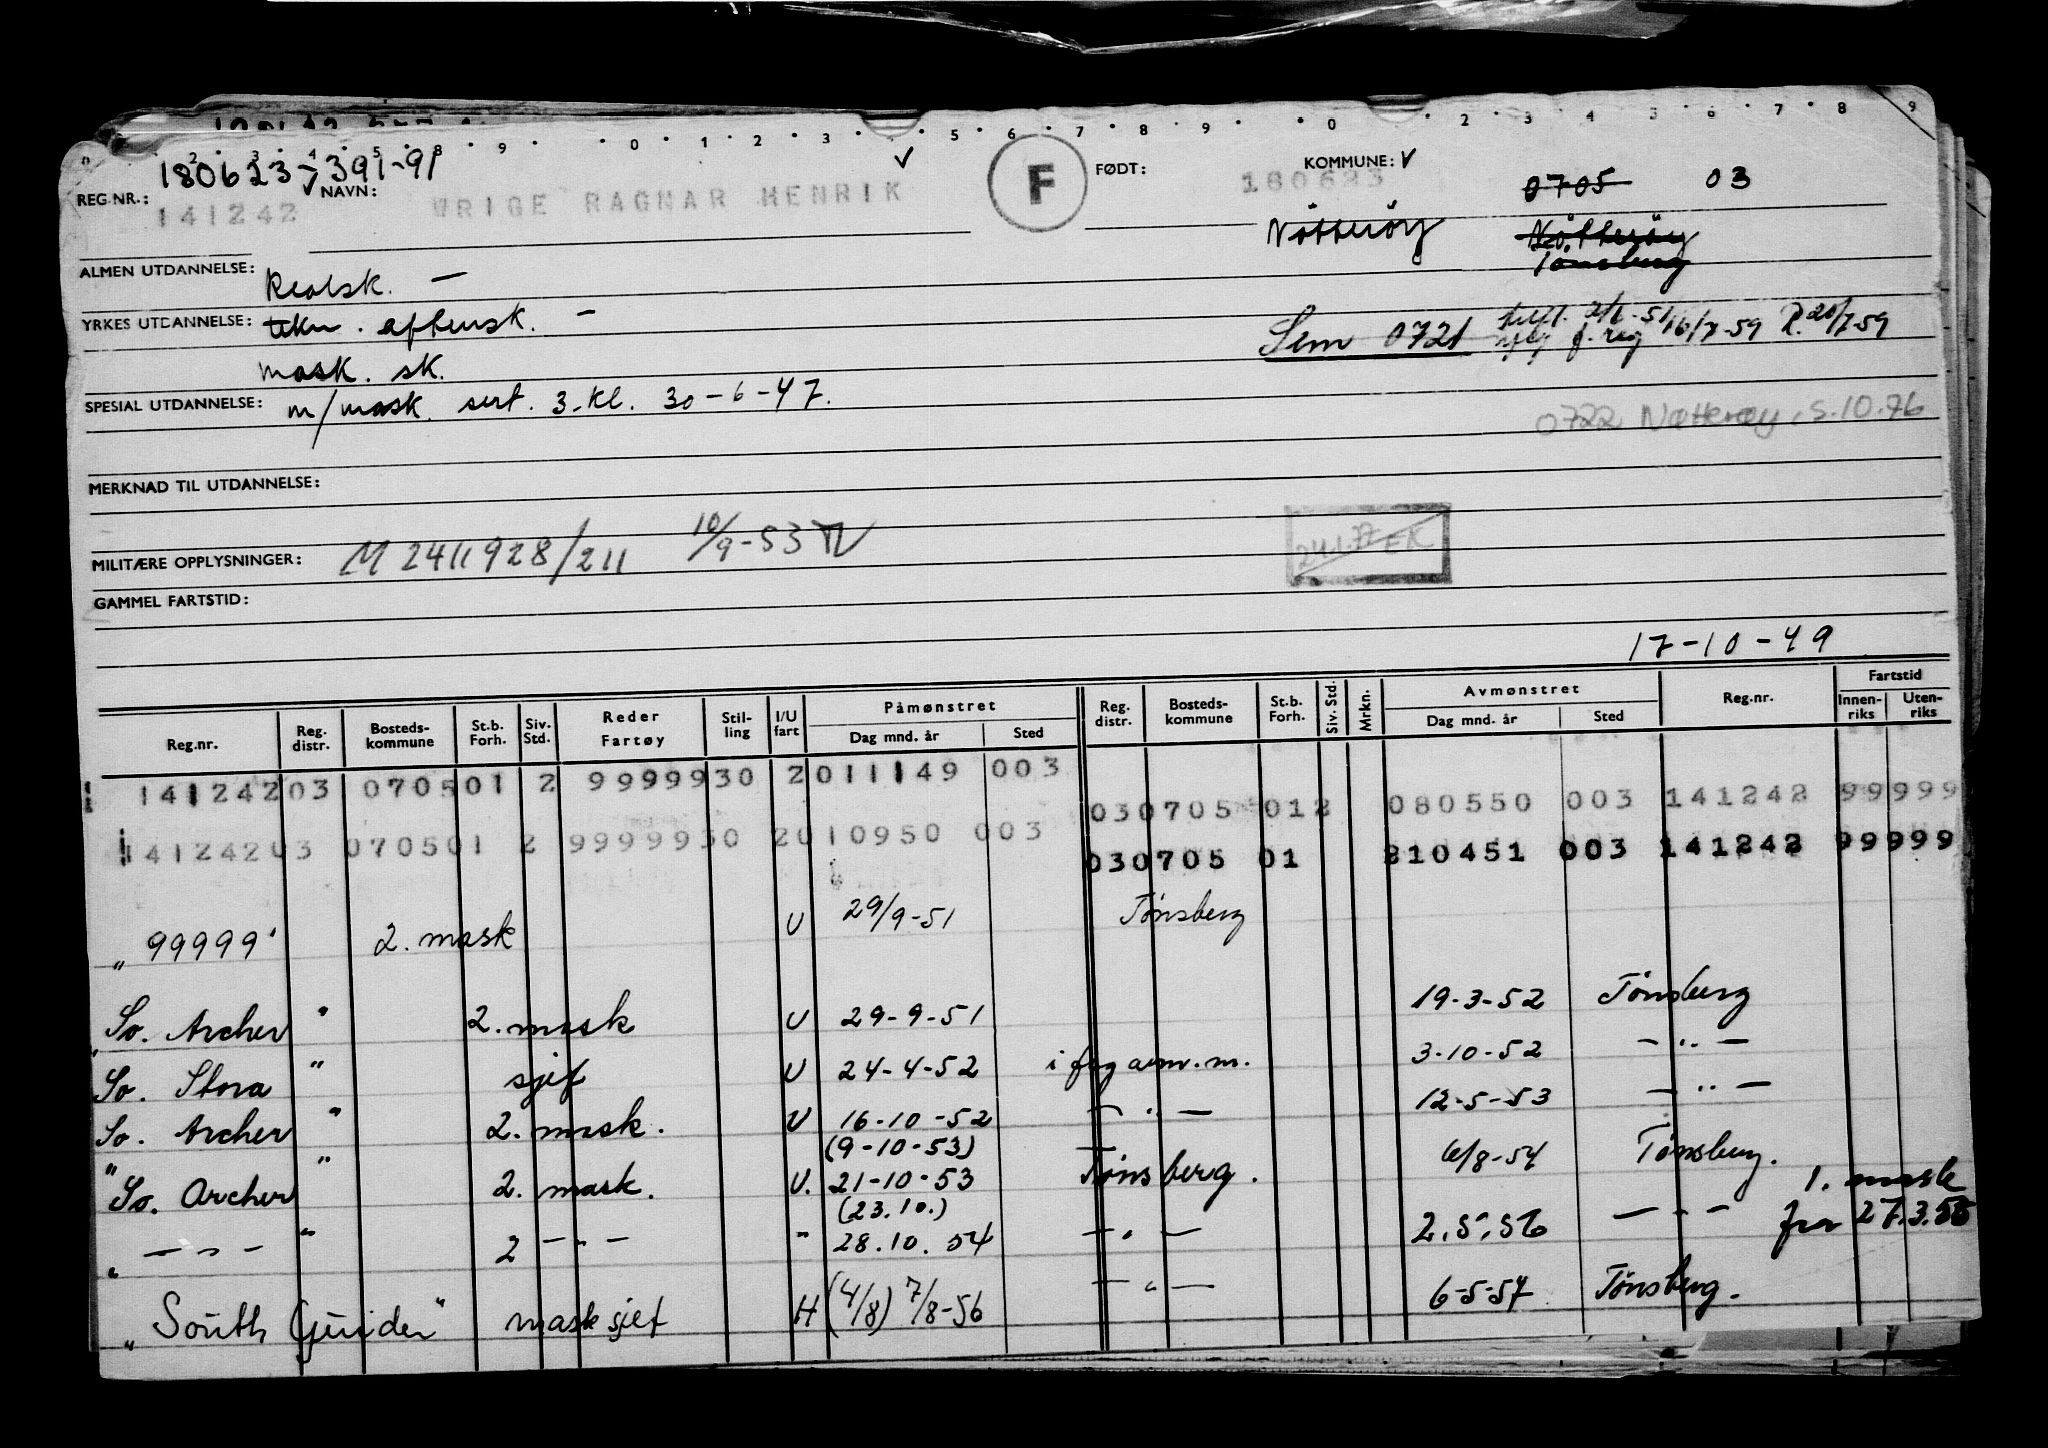 180623-391-91
REG.NR.: 141242 NAVN: WRIGE RAGNAR HENRIK F FØDT: 180623 KOMMUNE: 0705 03
Nötteröy Nötteröy
Tönsberg
ALMEN UTDANNELSE: Realsk. -
YRKES UTDANNELSE: tekn. aftensk. -
Sem 0721 16/7-59 R. 20/7-59
mask. sk.
SPESIAL UTDANNELSE: m/mask. sert. 3. kl. 30-6-47.
0722 Nøtterøy, 5.10.76
MERKNAD TIL UTDANNELSE:
MILITÆRE OPPLYSNINGER: M 2411928/211 10/9-53
24.1.77 EK
GAMMEL FARTSTID:
17-10-49
Reg.nr. Reg. distr. Bosteds-kommune St.b. Forh. Siv. Std. Reder Fartøy Stil-ling I/U fart Påmønstret Dag mnd. år Sted Reg. distr. Bosteds-kommune St.b. Forh. Siv. Std. Mrkn. Avmønstret Dag mnd. år Sted Reg.nr. Fartstid Innen-riks Uten-riks
141242 03 0705 01 2 9999930 2 011149 003 03 0705 01 2 080550 003 141242 99999
141242 03 0705 01 2 9999930 2 010950 003 03 0705 01 210451 003 141242 99999
"99999" 2. mask U 29/9-51 Tönsberg
"So. Archer" 2. mask U 29-9-51 19-3-52 Tönsberg
"So. Stora" sjef U 24-4-52 i flg avm. m. 3-10-52 - " -
So. Archer" 2. mask. U 16-10-52 - " - 12-5-53 - " -
(9-10-53)
"So. Archer" 2. mask. U. 21-10-53 Tönsberg. 6/8-54 Tönsberg.
(23.10.) 1. mask
" - " - " 2 - " - " 28.10.54 - " - 2.5.56 - " - fra 27.3.56
"South Guider" mask sjef H (4/8) 7/8-56 - " - 6-5-57 Tönsberg.